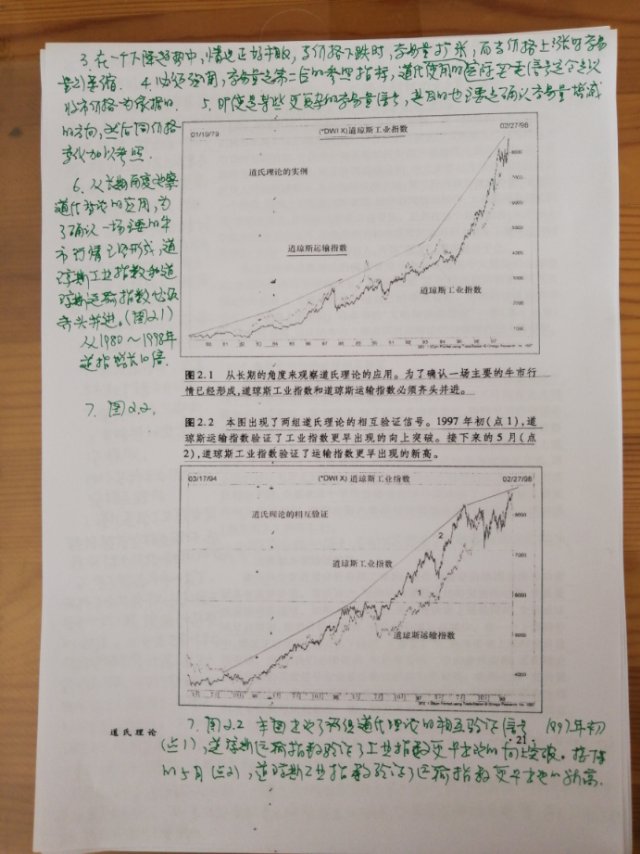 3. 在一个下降趋势中，情况正好相反，当价格下跌时，交易量扩张，而当价格上涨时交易
量则萎缩. 4. 必须强调，交易量是第二位的参照指标，道氏使用的
收市价格为依据的. 5. 即使是某些更复杂的交易量信号，也主要是确认交易量增减
的方向，然后同价格
变化加以参照.
6. 从长期角度观察
道氏理论的应用，为
了确认一场主要的牛
市行情已经形成，道
琼斯工业指数和道
琼斯运输指数必须
齐头并进。(图2.1)
从1980～1998年
道指增长10倍.
01/19/79
(^DWI X) 道琼斯工业指数
02/27/98
道氏理论的实例
道琼斯运输指数
道琼斯工业指数
图2.1 从长期的角度来观察道氏理论的应用。为了确认一场主要的牛市行
情已经形成，道琼斯工业指数和道琼斯运输指数必须齐头并进。
7. 图2.2.
图2.2 本图出现了两组道氏理论的相互验证信号。1997 年初(点 1)，道
琼斯运输指数验证了工业指数更早出现的向上突破。接下来的 5 月(点
2)，道琼斯工业指数验证了运输指数更早出现的新高。
03/17/94
(^DWI X) 道琼斯工业指数
02/27/98
道氏理论的相互验证
道琼斯工业指数
2
1
道琼斯运输指数
道氏理论
·21·
7. 图2.2 本图出现了两组道氏理论的相互验证信号 1997年初
(点1)，道琼斯运输指数验证了工业指数更早出现的向上突破。接下来
的5月(点2)，道琼斯工业指数验证了运输指数更早出现的新高.